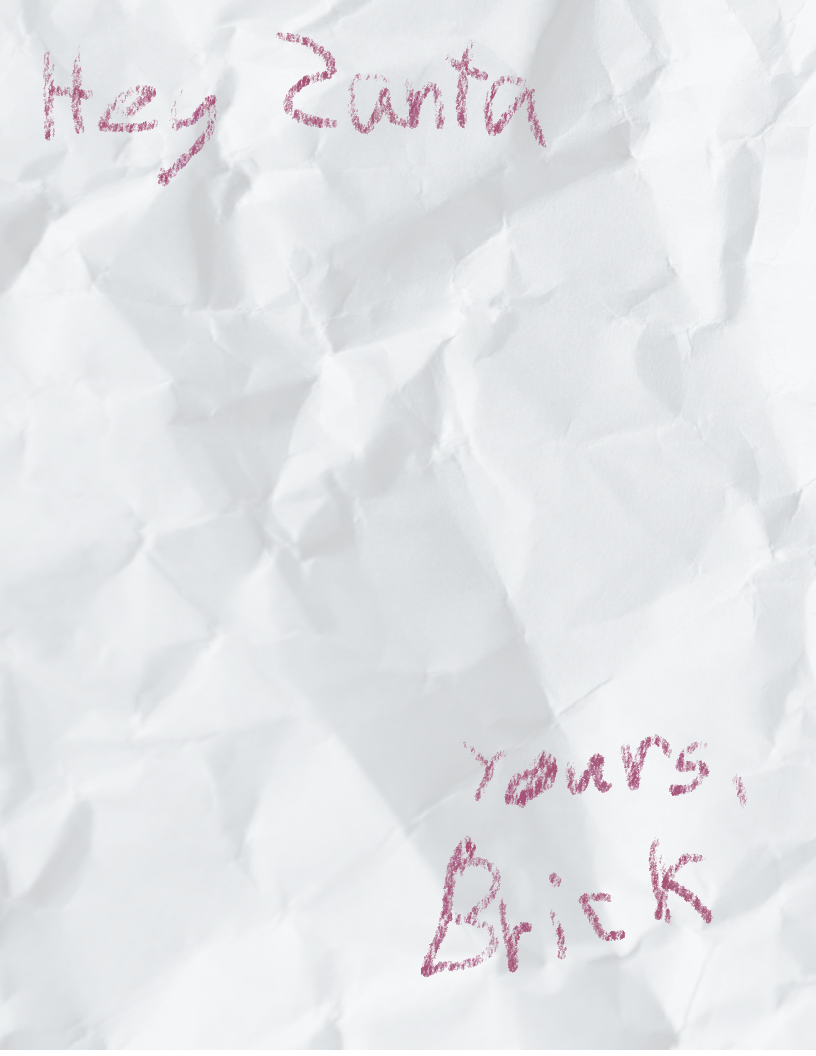 Hey Santa
Yours,
Brick